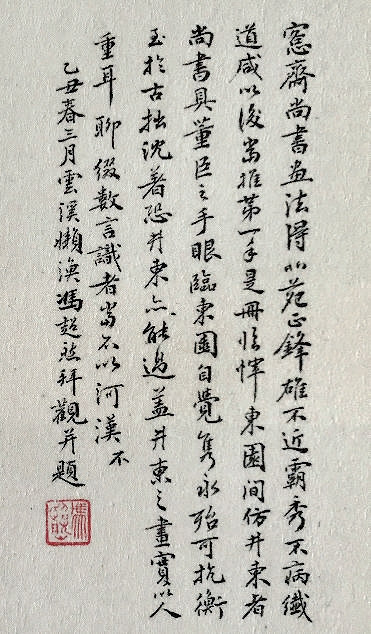 窓齋尚書画法得北苑正鋒雄不近霸秀不病纖
道咸以後當推第一手是冊臨惲東園間仿井東者
尚書具董臣之手眼臨東園自覺雋永殆可抗衡
至於古拙沈著恐井東亦能過蓋井東之畫實以人
重耳聊綴數言識者當不以河漢不
乙丑春三月雲溪懶漁馮超然拜觀并題